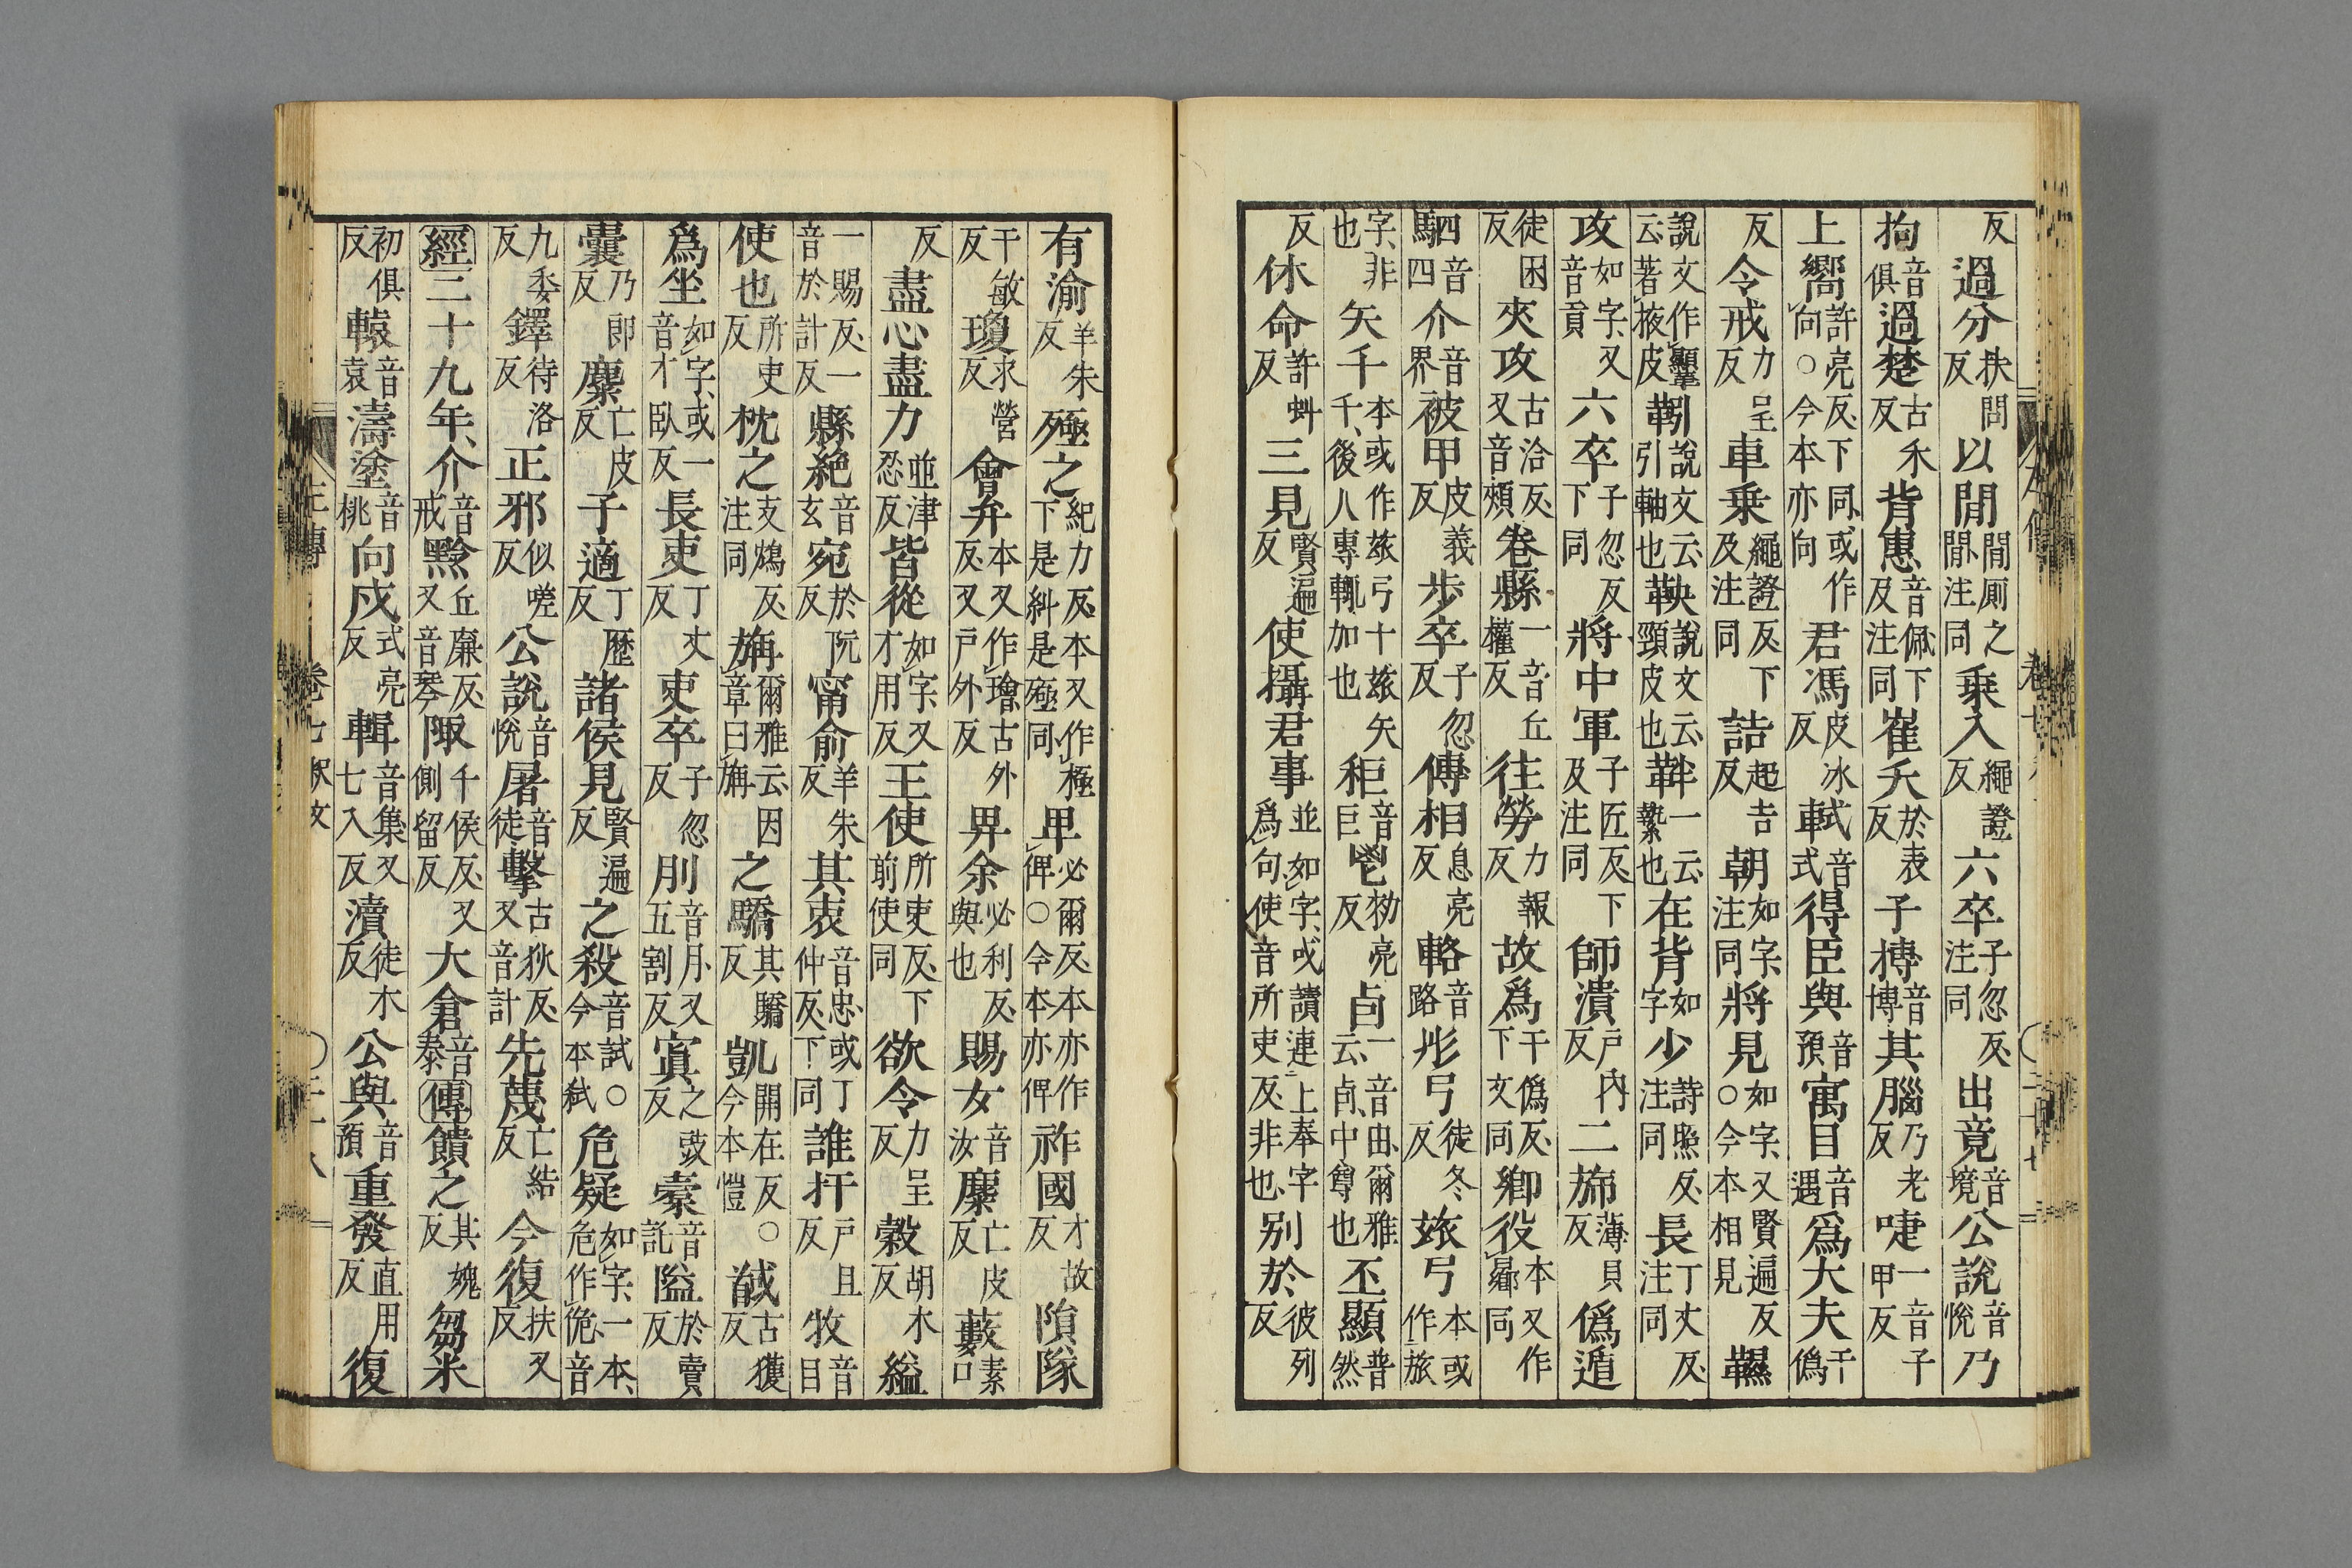 反過分扶問反以閒閒厠之閒注同乘入繩證反六卒子忽反注同出竟音境公說音悅乃
拘音俱過楚古禾反背惠音佩下及注同崔夭於表反子搏音博其腦乃老反啑一音子甲反
上嚮許亮反下同或作向○今本亦向君馮皮冰反軾音式得臣與音預寓目音遇爲大夫干僞
反令戒力呈反車乘繩證反下及注同詰起吉反朝如字注同將見如字又賢遍反○今本相見韅
說文作云著掖皮靷說文云引軸也鞅說文云頸皮也靽一云縶也在背如字少詩照反注同長丁丈反注同
攻如字又音貢六卒子忽反下同將中軍子匠反下及注同師潰戶内反二旆薄貝反僞遁
徒困反夾攻古洽反又音頰卷縣一音丘權反往勞力報反故爲干僞反下文同鄉役本又作曏同
駟音四介音界被甲皮義反步卒子忽反傅相息亮反輅音路彤弓徒冬反玈弓本或作旅
字非也矢千本或作玈弓十玈矢千後人專輒加也秬音巨鬯勑亮反卣一音由爾雅云卣中尊也丕顯普然
反休命許蚪反三見賢遍反使攝君事並如字或讀連上奉字爲句使音所吏反非也别於彼列反
有渝羊朱反殛之紀力反本又作極下是糾是殛同卑必爾反本亦作俾○今本亦俾祚國才故反隕隊
干敏反瓊求營反會弁本又作璯古外反又戶外反畀余必利反與也賜女音汝麋亡皮反藪素口
反盡心盡力並津忍反皆從如字又才用反王使所吏反下前使同欲令力呈反榖胡木反縊
一賜反一音於計反縣絶音玄宛於阮反甯俞羊朱反其衷音忠或丁仲反下同誰扞戶旦反牧音目
使也所吏反枕之支鴆反注同旃爾雅云因章曰旃之驕其驕反凱開在反○今本愷馘古獲反
爲坐如字或一音才臥反長吏丁丈反吏卒子忽反刖音月又五割反寘之豉反橐音託隘於賣反
囊乃郎反麋亡皮反子適丁歷反諸侯見賢遍反之殺音試○今本弑危疑如字一本危作佹音
九委反鐸待洛反正邪似嗟反公說音悅屠音徒擊古狄反又音計先蔑亡結反今復扶又反
經二十九年介音戒黔丘廉反又音琴陬千侯反又側留反大倉音泰傳饋之其媿反芻米
初俱反轅音袁濤塗音桃向戌式亮反輯音集又七入反瀆徒木反公與音預重發直用反復